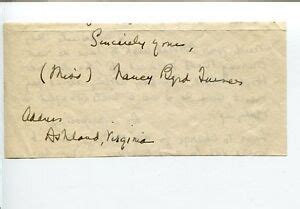 Sincerely yours,
(Miss) Nancy Byrd Turner
Address
Ashland, Virginia